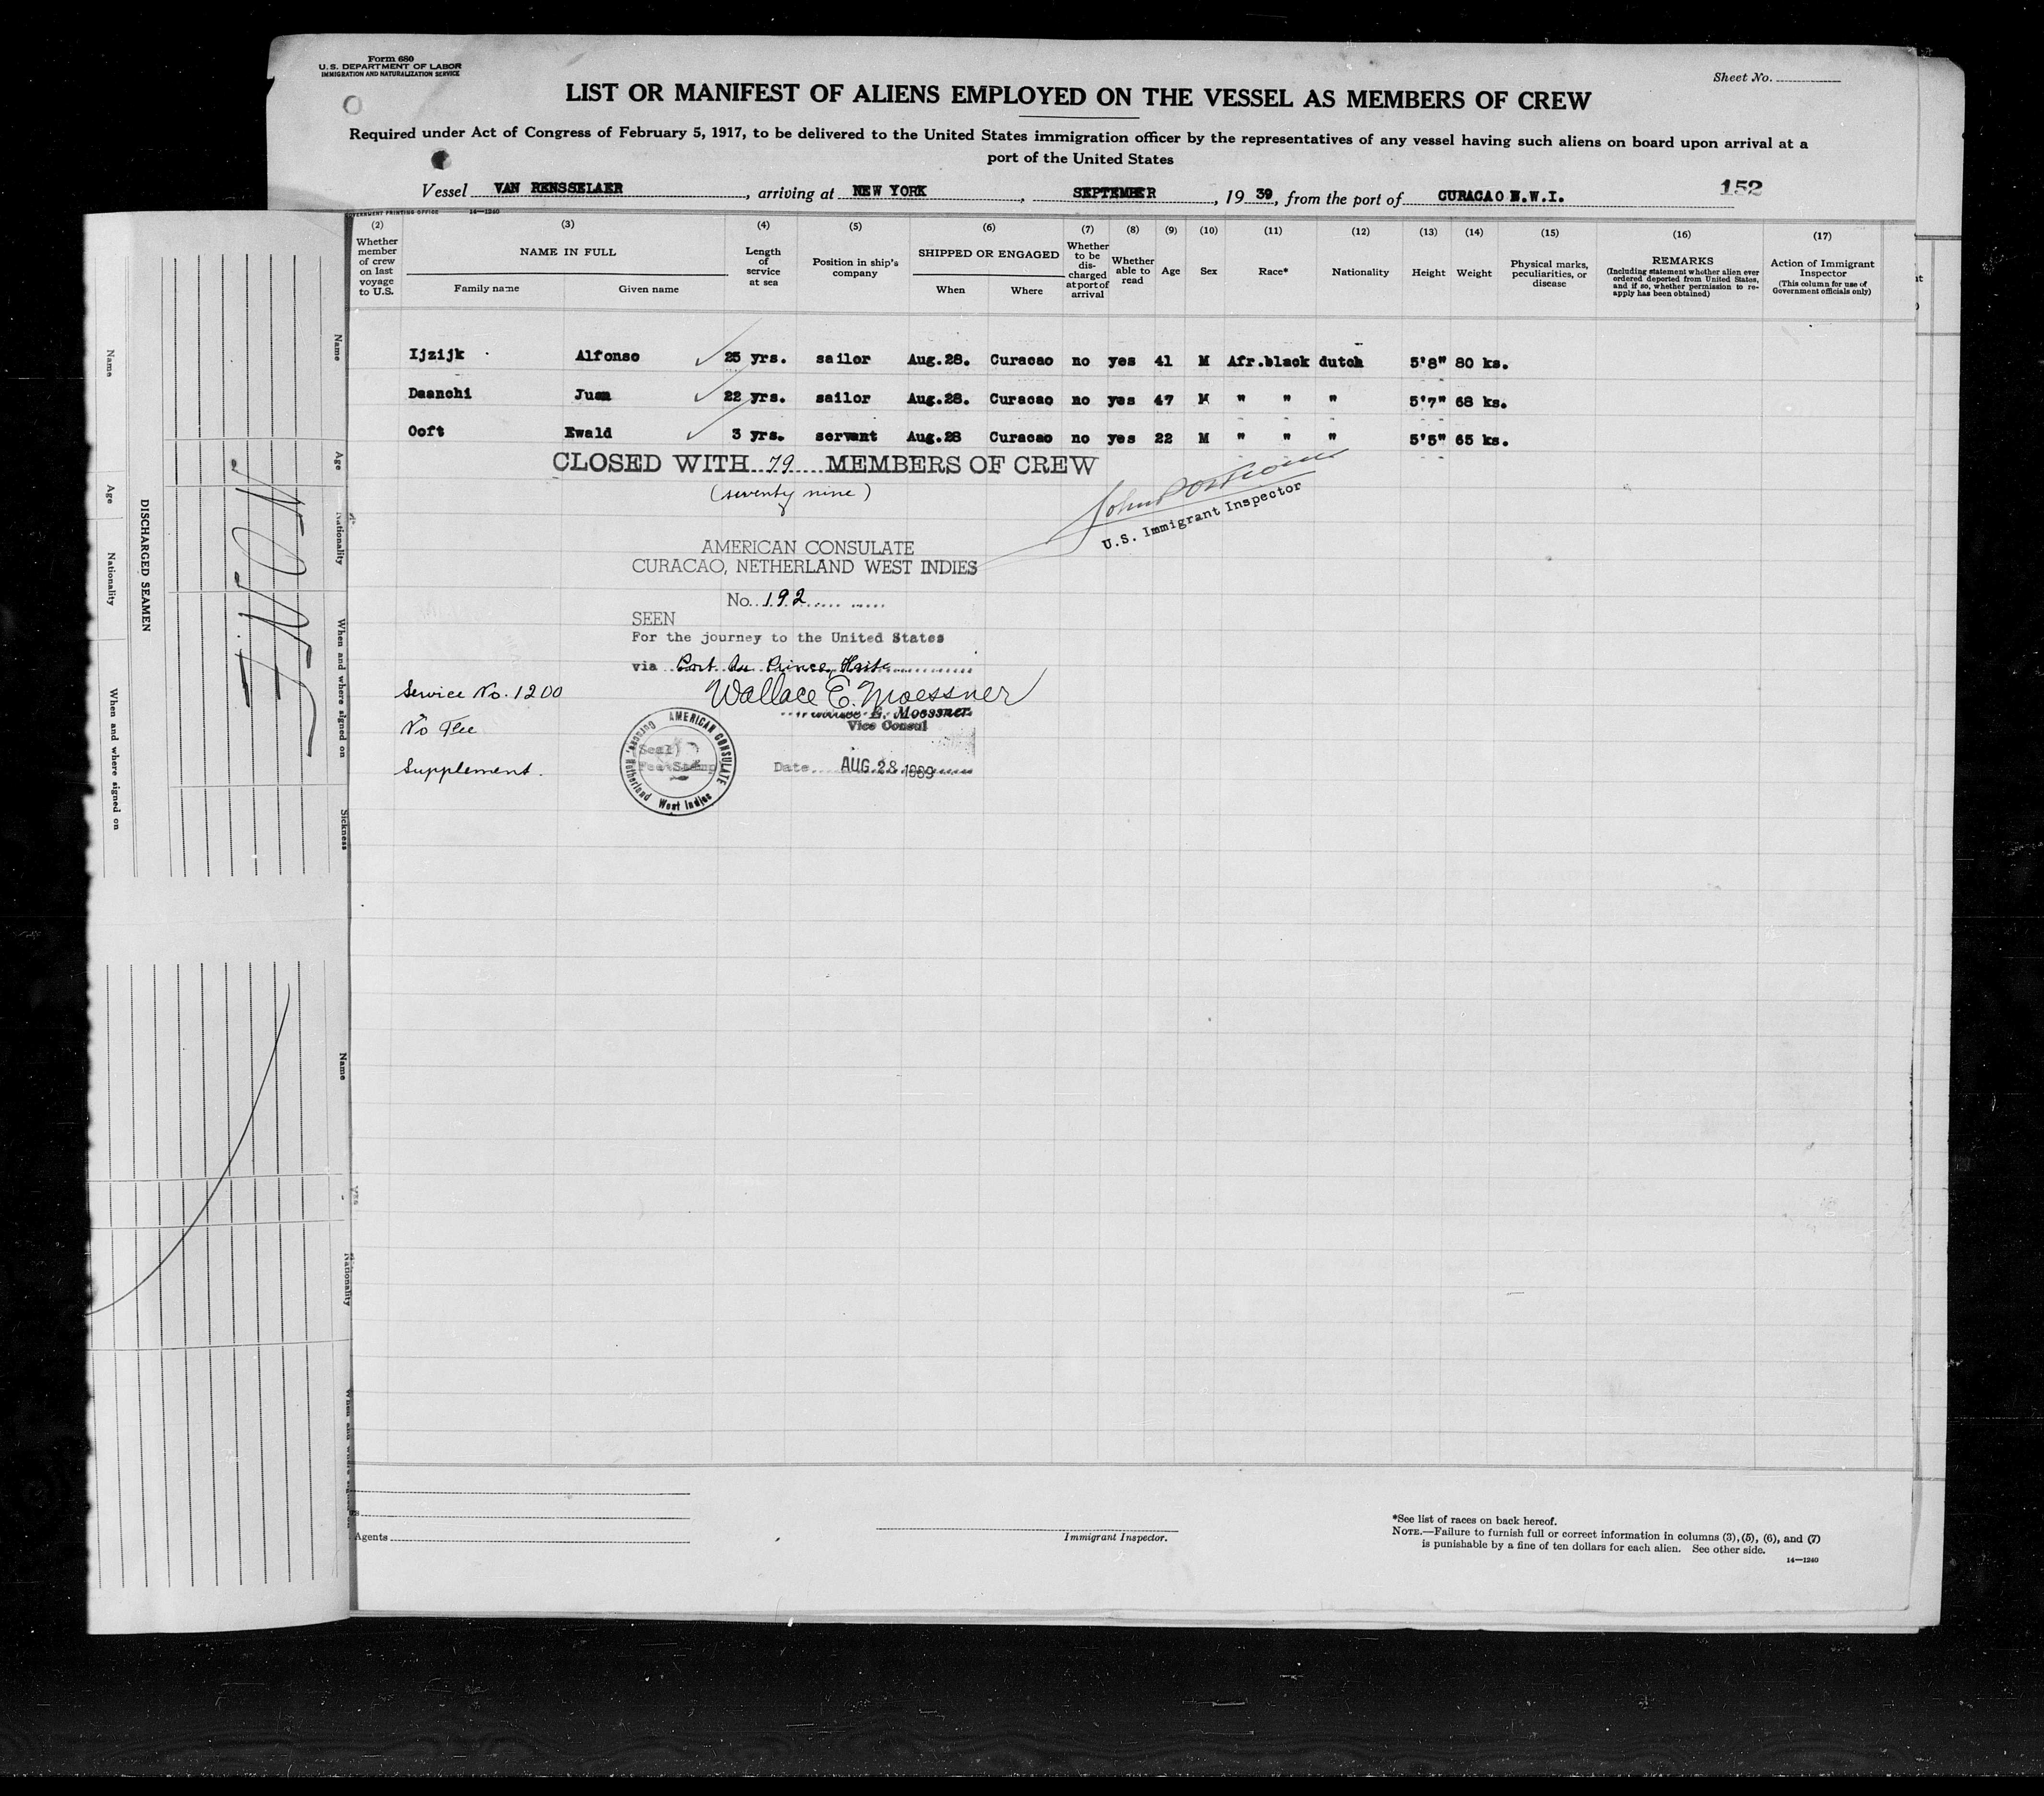 Form 680
U. S. DEPARTMENT OF LABOR
IMMIGRATION AND NATURALIZATION SERVICE
Sheet No.
LIST OR MANIFEST OF ALIENS EMPLOYED ON THE VESSEL AS MEMBERS OF CREW
Required under Act of Congress of February 5, 1917, to be delivered to the United States immigration officer by the representatives of any vessel having such aliens on board upon arrival at a
port of the United States
Vessel VAN RENSSELAER, arriving at NEW YORK, SEPTEMBER, 19 39, from the port of CURACAO N.W.I.
152
GOVERNMENT PRINTING OFFICE 14—1240
(2) Whether member of crew on last voyage to U.S.
(3) NAME IN FULL
Family name Given name
(4) Length of service at sea
(5) Position in ship's company
(6) SHIPPED OR ENGAGED
When Where
(7) Whether to be discharged at port of arrival
(8) Whether able to read
(9) Age
(10) Sex
(11) Race*
(12) Nationality
(13) Height
(14) Weight
(15) Physical marks, peculiarities, or disease
(16) REMARKS
(Including statement whether alien ever ordered deported from United States, and if so, whether permission to reapply has been obtained)
(17) Action of Immigrant Inspector
(This column for use of Government officials only)
Ijzijk Alfonso 25 yrs. sailor Aug.28. Curacao no yes 41 M Afr.black dutch 5'8" 80 ks.
Daanchi Juan 22 yrs. sailor Aug.28. Curacao no yes 47 M " " " 5'7" 68 ks.
Ooft Ewald 3 yrs. servant Aug.28 Curacao no yes 22 M " " " 5'5" 65 ks.
CLOSED WITH 79 MEMBERS OF CREW
(seventy nine)
U.S. Immigrant Inspector
AMERICAN CONSULATE
CURACAO, NETHERLAND WEST INDIES
No. 192
SEEN
For the journey to the United States
via Port Au Prince, Haiti
Service No. 1200
Wallace E. Moessner
Wallace E. Moessner
Vice Consul
No Fee
Supplement.
AMERICAN CONSULATE
Curacao, Netherland West Indies
(Seal)
Fee Stamp
Date AUG 28 1939
Name
Age
Nationality
When and where signed on
DISCHARGED SEAMEN
Name
Age
Nationality
When and where signed on
Sickness
Name
Nationality
Agents
Immigrant Inspector.
*See list of races on back hereof.
NOTE.—Failure to furnish full or correct information in columns (3), (5), (6), and (7)
is punishable by a fine of ten dollars for each alien. See other side.
14—1240